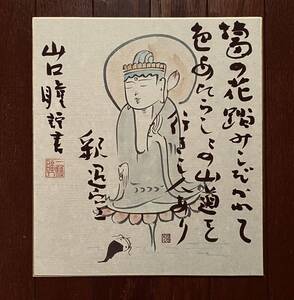 葛の花踏みしだかれて
色あたらしこの山道を
行きし人あり
釈迢空
山口瞳書